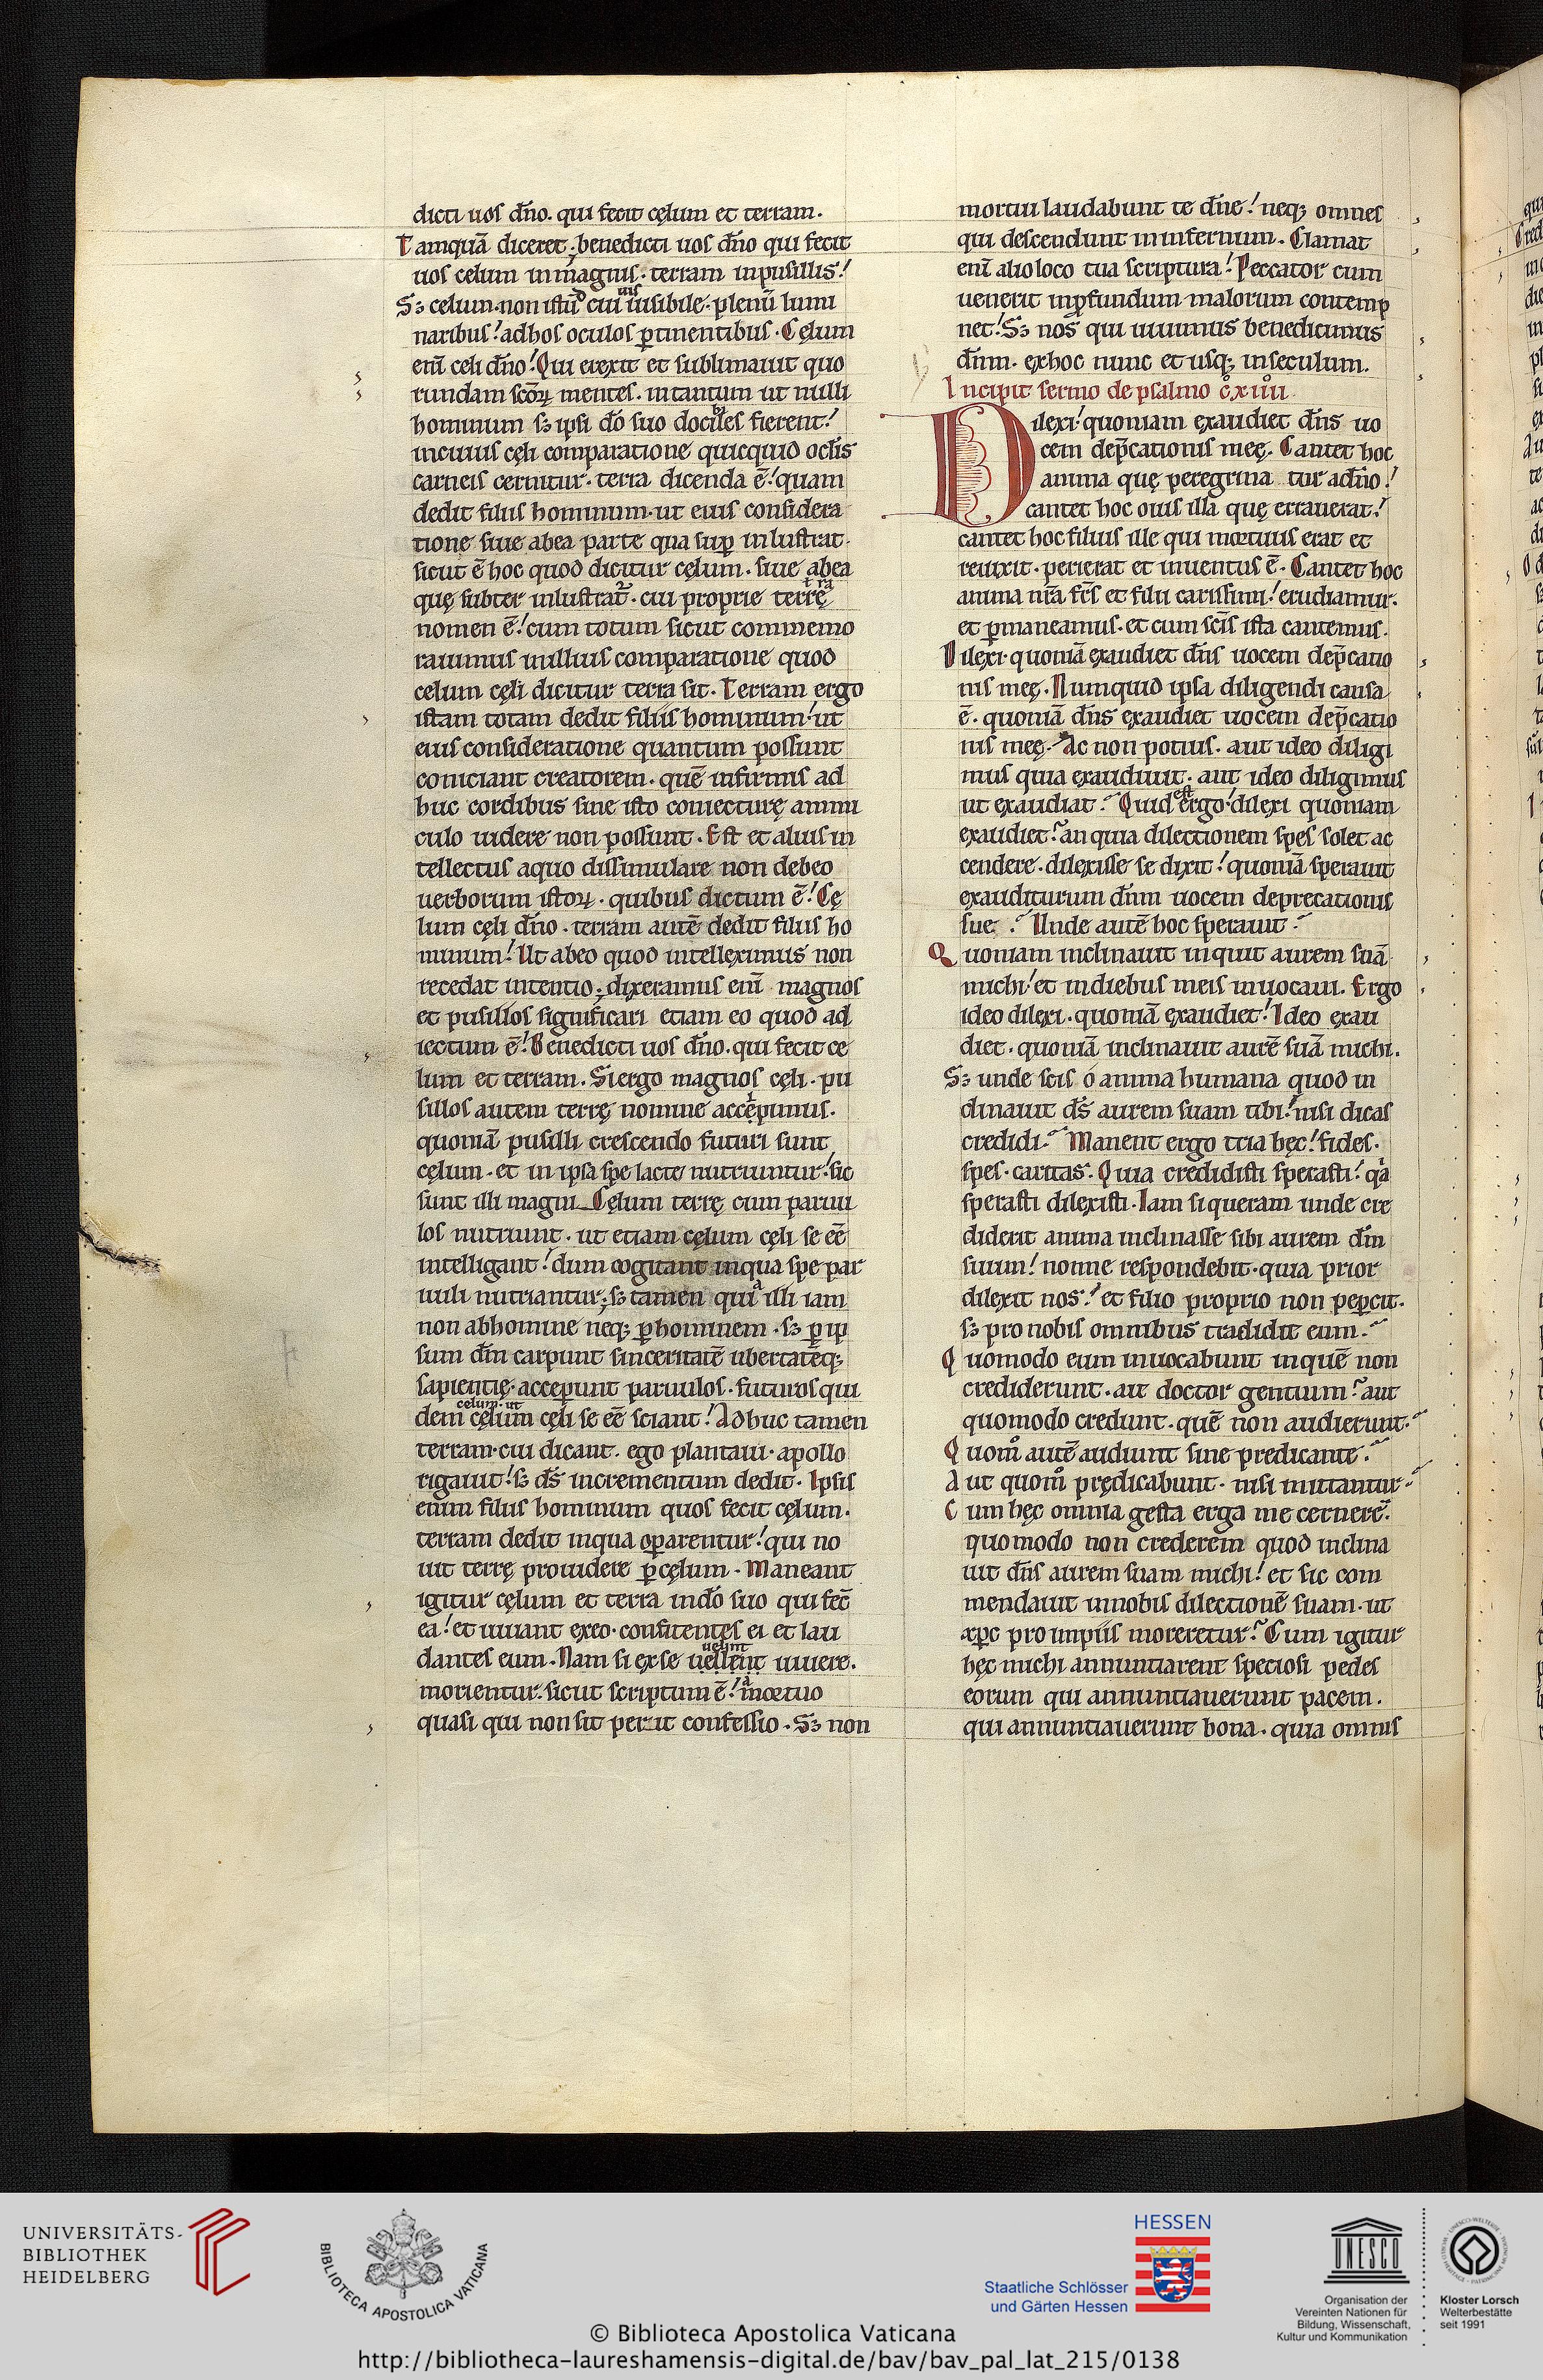 dicti uos dño. qui fecit cęlum et terram.
Tamquā diceret; benedicti uos dño qui fecit
uos celum in magnis. terram in pusillis!
Sꝫ celum. non istud cui uisibile. plenū lumi
naribus! ad hos oculos ꝑtinentibus. Cęlum
enī celi dño! Qui erexit et sublimauit quo
rundam scōꝝ mentes. in tantum ut nulli
hominum sꝫ ipsi dō suo dociles fierent!
in cuius cęli comparatione quicquid oclis
carneis cernitur. terra dicenda ē! quam
dedit filiis hominum. ut eius considera
tione siue ab ea parte qua suꝑ inlustrat.
sicut ē hoc quod dicitur cęlum. siue ab ea
quę subter inlustrat̄. cui proprie terrę
nomen ē! cum totum sicut commemo
rauimus in illius comparatione quod
celum cęli dicitur terra sit. Terram ergo
istam totam dedit filiis hominum! ut
eius consideratione quantum possunt
coniciant creatorem. quē infirmis ad
huc cordibus sine isto coniecturę ammi
culo uidere non possunt. Est et alius in
tellectus a quo dissimulare non debeo
uerborum istoꝝ. quibus dictum ē! Cę
lum cęli dño. terram autē dedit filiis ho
minum! Ut ab eo quod intelleximus non
recedat intentio; dixeramus enī magnos
et pusillos significari etiam eo quod ad
iectum ē! Benedicti uos dño. qui fecit ce
lum et terram. Si ergo magnos cęli. pu
sillos autem terrę nomine accępimus.
quoniā pusilli crescendo futuri sunt
cęlum. et in ipsa spe lacte nutriuntur! sic
sunt illi magni Cęlum terrę cum paruu
los nutriunt. ut etiam cęlum cęli se eē
intelligant! dum cogitant in qua spe par
uuli nutriantur; sꝫ tamen quia illi iam
non ab homine neqꝫ ꝑ hominem. sꝫ ꝑ ip
sum dm̄ carpunt sinceritatē ubertatēqꝫ
sapientię. acceꝑunt paruulos. futuros qui
celum. ut
dem cęlum cęli se eē sciant! Adhuc tamen
terram. cui dicant. ego plantaui. apollo
rigauit! sꝫ dš incrementum dedit. Ipsis
enim filiis hominum quos fecit cęlum.
terram dedit in qua oꝑarentur! qui no
uit terrę prouidere ꝑ cęlum. Maneant
igitur cęlum et terra in dō suo qui fec̄
ea! et uiuant ex eo. confitentes ei et lau
uelint
dantes eum. Nam si ex se uellent uiuere.
morientur. sicut scriptum ē! a mortuo
quasi qui non sit perit confessio. Sꝫ non
mortui laudabunt te dñe! neqꝫ omnes
qui descendunt in infernum. Clamat
enī alio loco tua scriptura! Peccator cum
uenerit in ꝓfundum malorum contemp
net! Sꝫ nos qui uiuimus benedicimus
dñm. ex hoc nunc et usqꝫ in seculum.
Incipit sermo de psalmo c̊xiiii̊
Dilexi! quoniam exaudiet dñs uo
cem dep̄cationis meę. Cantet hoc
anima quę peregrina tur a dño!
cantet hoc ouis illa quę errauerat!
cantet hoc filius ille qui mortuus erat et
reuixit. perierat et inuentus ē. Cantet hoc
anima nr̄a fr̄s et filii carissimi! erudiamur.
et ꝑmaneamus. et cum sc̄is ista cantemus.
Dilexi. quoniā exaudiet dñs uocem dep̄catio
nis meę. Numquid ipsa diligendi causa
ē. quoniā dñs exaudiet uocem dep̄catio
nis meę. Ac non potius. aut ideo diligi
mus quia exaudiuit. aut ideo diligimus
ut exaudiat? Quid est ergo! dilexi quoniam
exaudiet? an quia dilectionem spes solet ac
cendere. dilexisse se dixit! quoniā sperauit
exauditurum dñm uocem deprecationis
sue? Unde autē hoc sperauit?
Quoniam inclinauit inquit aurem suā
michi! et in diebus meis inuocaui. Ergo
ideo dilexi. quoniā exaudiet! Ideo exau
diet. quoniā inclinauit aurē suā michi.
Sꝫ unde scis o anima humana quod in
clinauit dš aurem suam tibi! nisi dicas
credidi? Manent ergo tria hęc! fides.
spes. caritas. Quia credidisti sperasti! qa
sperasti dilexisti. Iam si queram unde cre
diderit anima inclinasse sibi aurem dm̄
suum! nonne respondebit. quia prior
dilexit nos! et filio proprio non peꝑcit.
sꝫ pro nobis omnibus tradidit eum?
Quomodo eum inuocabunt in quē non
crediderunt. ait doctor gentium? aut
quomodo credunt. quē non audierunt?
Quom̊ autē audiunt sine predicante?
Aut quom̊ prędicabunt. nisi mittantur?
Cum hęc omnia gesta erga me cernerē.
quomodo non crederem quod inclina
uit dñs aurem suam michi! et sic com
mendauit in nobis dilectionē suam. ut
xp̄c pro impiis moreretur? Cum igitur
hęc michi annuntiarent speciosi pedes
eorum qui annuntiauerunt pacem.
qui annuntiauerunt bona. quia omnis
UNIVERSITÄTS-
BIBLIOTHEK
HEIDELBERG
BIBLIOTECA APOSTOLICA VATICANA
HESSEN
Staatliche Schlösser
und Gärten Hessen
UNESCO
Organisation der
Vereinten Nationen für
Bildung, Wissenschaft,
Kultur und Kommunikation
Kloster Lorsch
Welterbestätte
seit 1991
© Biblioteca Apostolica Vaticana
http://bibliotheca-laureshamensis-digital.de/bav/bav_pal_lat_215/0138